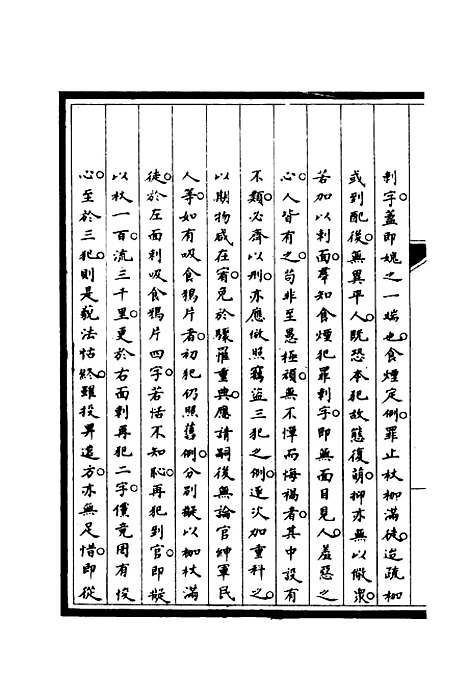 刺字蓋即媿之一端也食煙定例罪止杖枷滿徒迨疏枷
或到配後無異平人既恐本犯故態復萌抑亦無以儆眾
若加以刺面羣知食煙犯罪刺字即無面目見人羞惡之
心人皆有之苟非至愚極頑無不憚而悔禍者其中設有
不類必齊以刑亦應倣照竊盜三犯之例遞次加重科之
以期物咸在宥免於驟罹重典應請嗣後無論官紳軍民
人等如有吸食鴉片者初犯仍照舊例分別擬以枷杖滿
徒於左面刺吸食鴉片四字若怙不知恥再犯到官即擬
以杖一百流三千里更於右面刺再犯二字儻竟罔有悛
心至於三犯則是藐法怙終雖投畀遠方亦無足惜即從